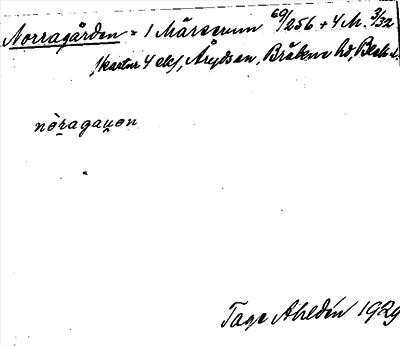 Norragården = 1 Märserum 69/256 + 4 M. 3/32
/kartur 4 eks/, Åryds sn, Bräkne hd, Blek. l.
nòragaꭒen
Tage Ahldén 1929